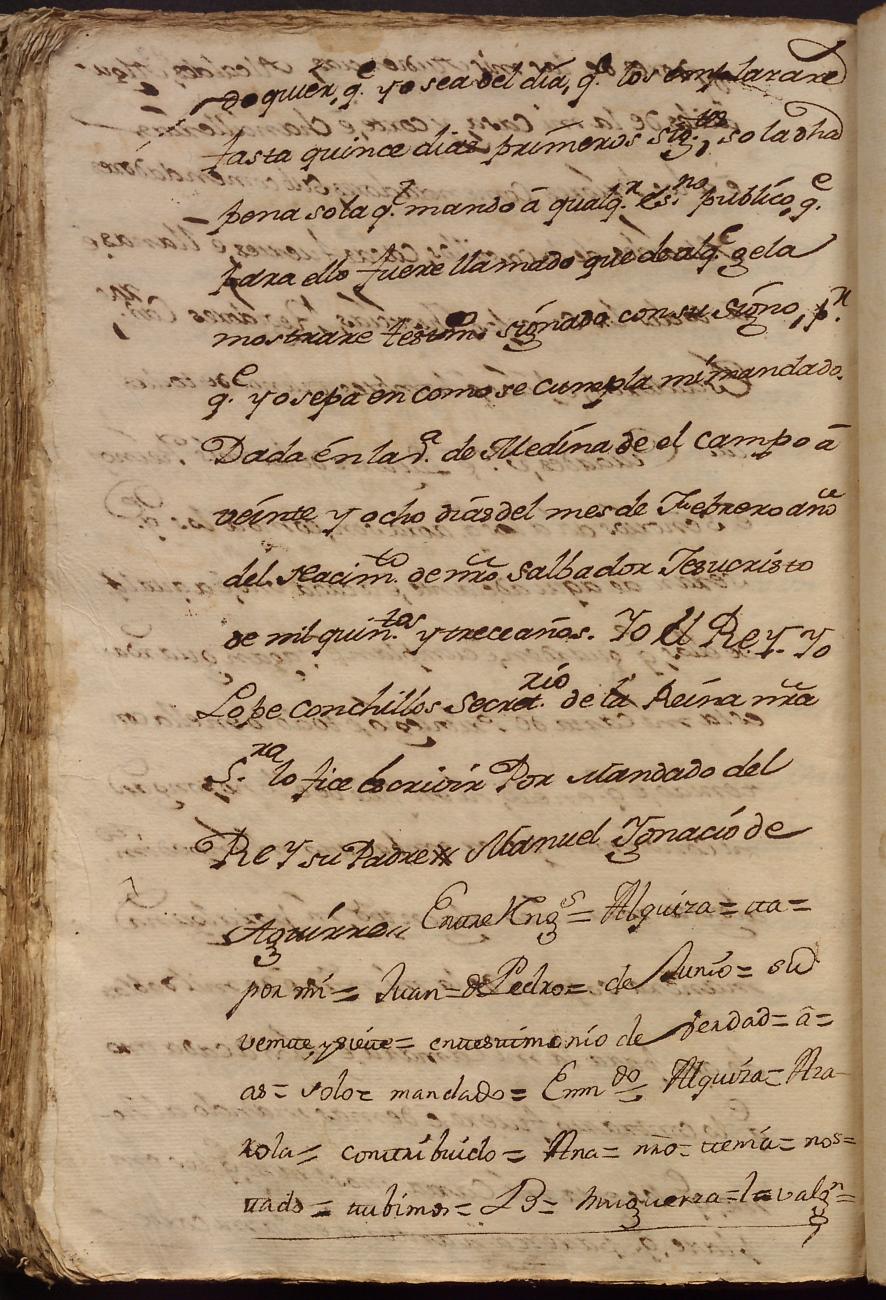 do quier, q.e yo sea del dia, q.e los emplazare
fasta quince dias primeros sig.tes, so la dha
pena so la q.l mando â qualq.r es.no publico, q.e
para ello fuere llamado que de al q.e gela
mostrare testim.o signado con su signo, p.r
q.e yo sepa en como se cumpla mi mandado.
Dada én la v.a de Medina de el campo â
veinte y ocho dias del mes de Febrero año
del Nacim.to de nro Salbador Jesucristo
de mil quin.tos y trece años. Yo el Rey. Yo
Lope conchillos Secret.rio de la Reina nra
S.ra lo fice escrivir Por Mandado del
Rey su Padre Manuel Ygnacio de
Aguirre Entre Rng.s = Alquiza = tta =
por mi = Juan = de Pedro = de Junio = su
veinte, y siete = en testimonio de Verdad = â =
as = solo = mandado = Enm.do = Alquiza = Ara
rola = contribuido = Ana = nro = tenia = nos =
ttado = ttubimos = B = Muguerza = l = valg.n =